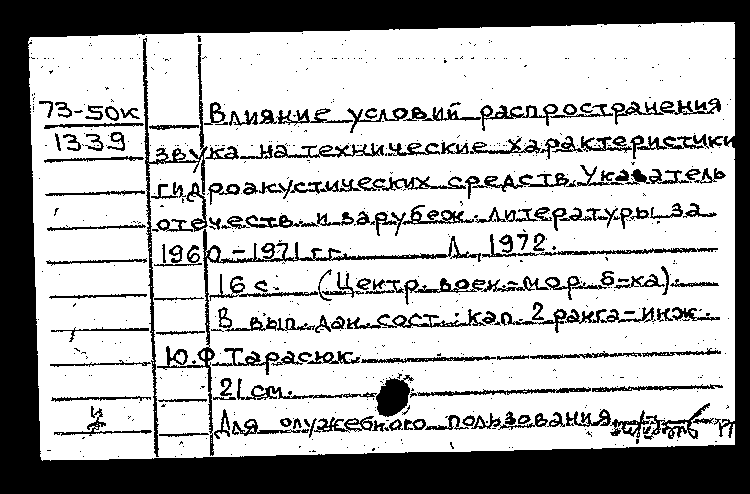 73-50к Влияние условий распространения
1339 звука на технические характеристики
гидроакустических средств. Указатель
отечеств. и зарубеж. литературы за
1960-1971 гг. Л., 1972.
16 с. (Центр. воен.-мор. б-ка).
В вып. дан. сост.: кап. 2 ранга-инж.
Ю.Ф. Тарасюк.
21 см.
Для служебного пользования